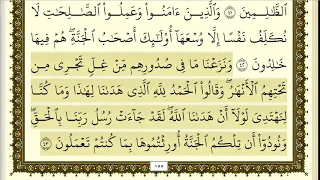 ٱلظَّٰلِمِينَ ٤١ وَٱلَّذِينَ ءَامَنُوا۟ وَعَمِلُوا۟ ٱلصَّٰلِحَٰتِ لَا
نُكَلِّفُ نَفْسًا إِلَّا وُسْعَهَآ أُو۟لَٰٓئِكَ أَصْحَٰبُ ٱلْجَنَّةِ هُمْ فِيهَا
خَٰلِدُونَ ٤٢ وَنَزَعْنَا مَا فِى صُدُورِهِم مِّنْ غِلٍّ تَجْرِى مِن
تَحْتِهِمُ ٱلْأَنْهَٰرُ وَقَالُوا۟ ٱلْحَمْدُ لِلَّهِ ٱلَّذِى هَدَىٰنَا لِهَٰذَا وَمَا كُنَّا
لِنَهْتَدِىَ لَوْلَآ أَنْ هَدَىٰنَا ٱللَّهُ لَقَدْ جَآءَتْ رُسُلُ رَبِّنَا بِٱلْحَقِّ
وَنُودُوٓا۟ أَن تِلْكُمُ ٱلْجَنَّةُ أُورِثْتُمُوهَا بِمَا كُنتُمْ تَعْمَلُونَ ٤٣
١٥٥